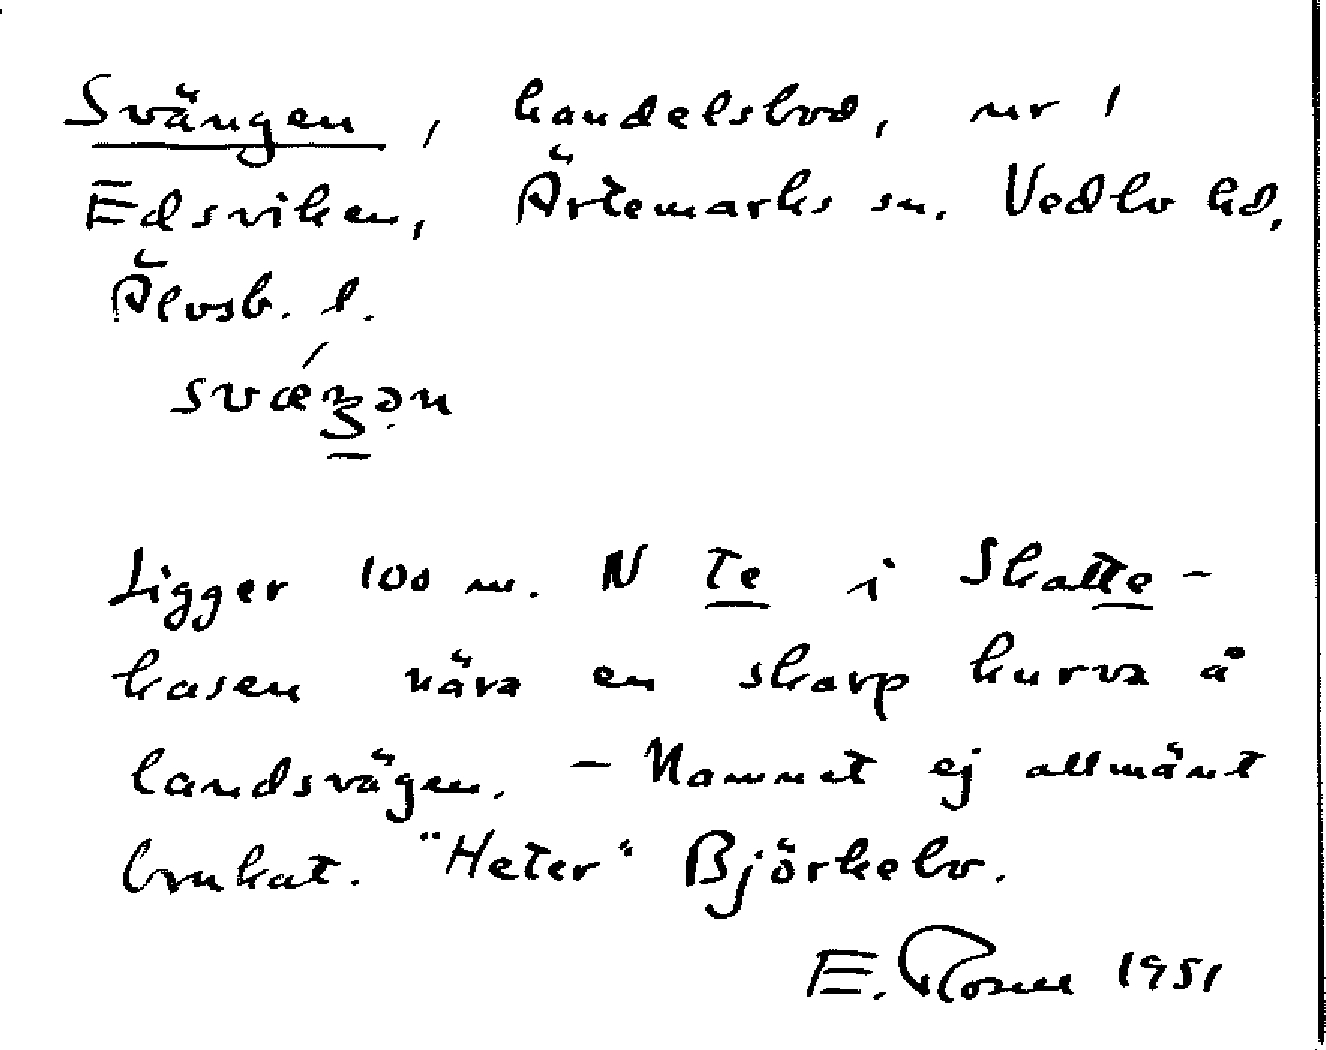 Svängen, handelsbod, nr 1
Edsviken, Ärtemarks sn. Vedbo hd,
Älvsb. l.
Ligger 100 m. N Te i Skatte-
kasen nära en skarp kurva å
landsvägen. - Namnet ej allmänt
brukat. "Heter" Björkebo.
E. Rosell 1951